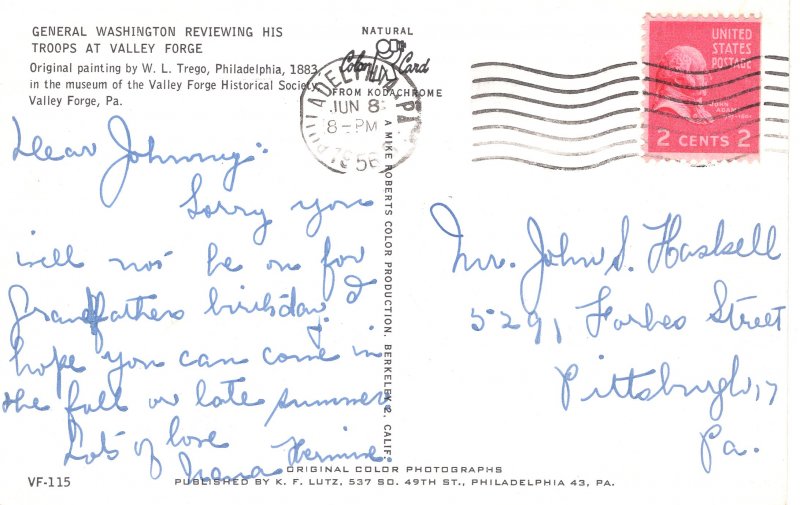 GENERAL WASHINGTON REVIEWING HIS
TROOPS AT VALLEY FORGE
Original painting by W. L. Trego, Philadelphia, 1883,
in the museum of the Valley Forge Historical Society
Valley Forge, Pa.
NATURAL
Color Card
FROM KODACHROME
PHILADELPHIA, PA.
JUN 8
8-PM
1956
UNITED
STATES
POSTAGE
JOHN
ADAMS
2 CENTS 2
Dear Johnny:
Sorry you
will not be on for
Grandfathers birthday. I
hope you can come in
the fall or late summer
Lots of love
Hermine
Mr. John S. Haskell
5291 Forbes Street
Pittsburgh, 17
Pa.
A MIKE ROBERTS COLOR PRODUCTION, BERKELEY 2, CALIF.
ORIGINAL COLOR PHOTOGRAPHS
PUBLISHED BY K. F. LUTZ, 537 SO. 49TH ST., PHILADELPHIA 43, PA.
VF-115